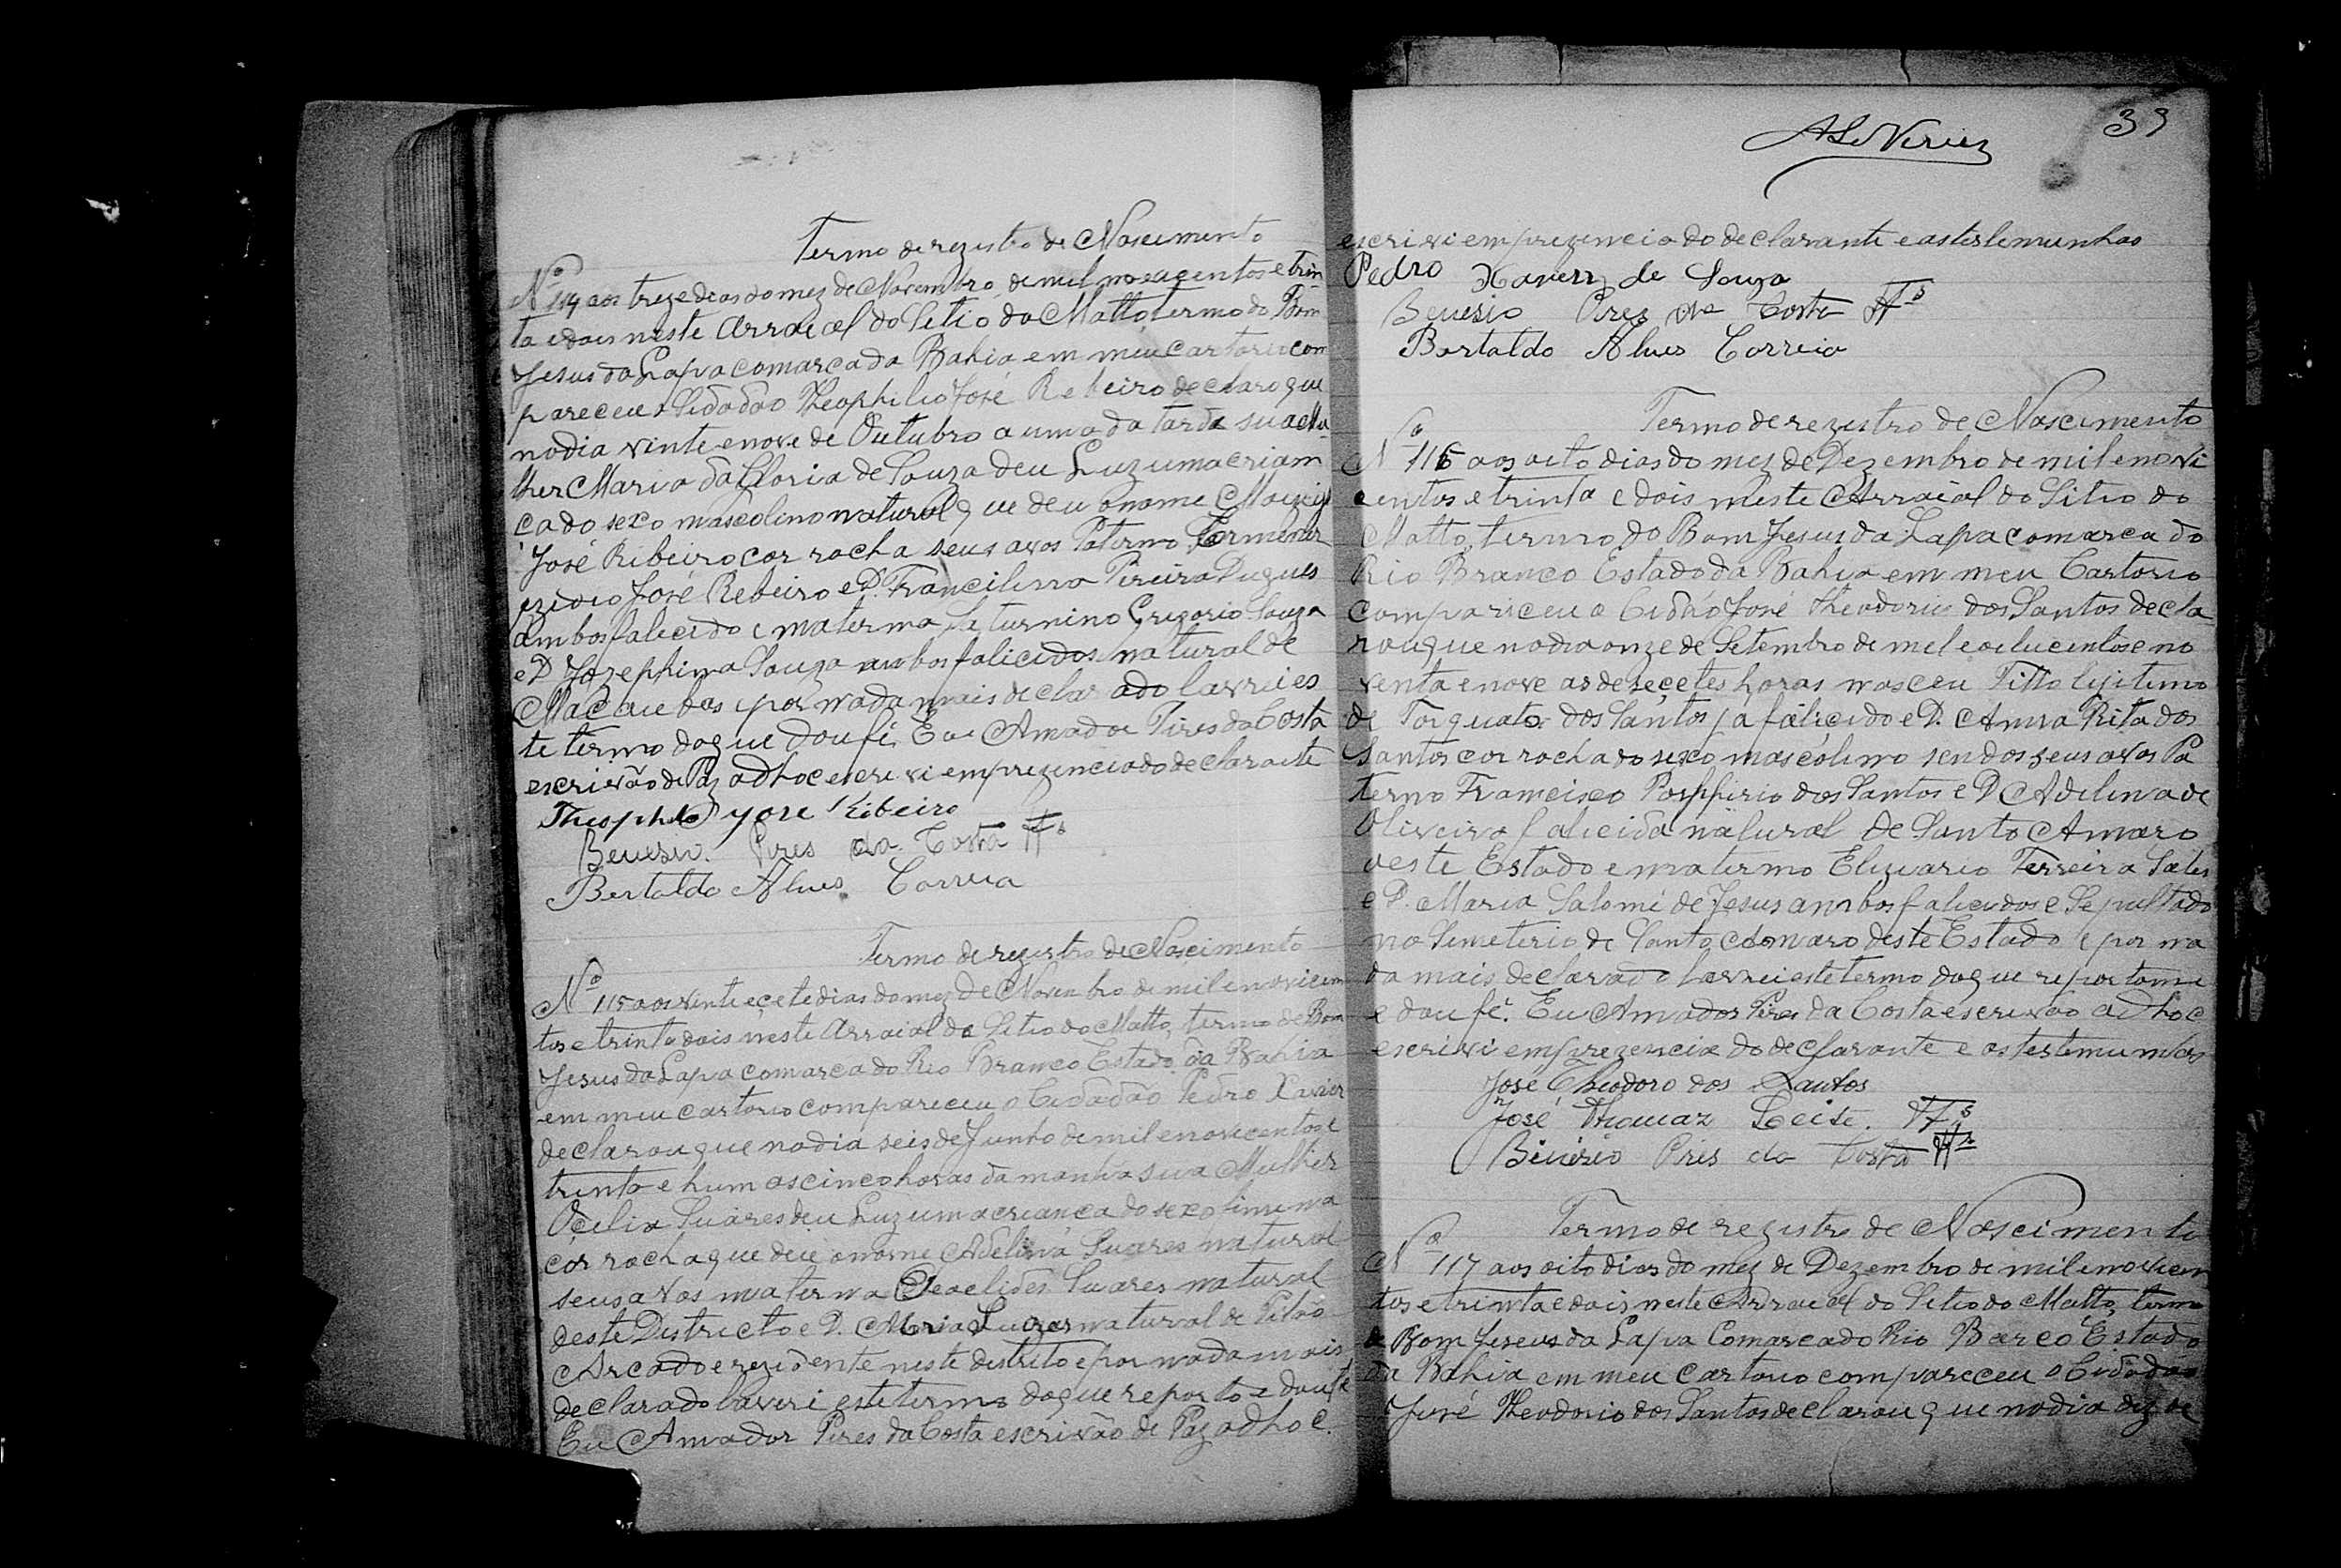 Termo de rezistro de Nascimento
Nº 114 aos treze dias do mez de Novembro de mil novecentos e trin
ta e dois neste Arraial do Sitio do Matto termo do Bom
Jesus da Lapa comarca da Bahia em meu cartorio com
pareceu o Sidadão Theophilio José Rebeiro declaro que
no dia vinte e nove de Outubro a uma da tarde sua Mu
lher Maria da Gloria de Souza deu Luz uma criam
ca do sexo mascolino natural que deu o nome
José Ribeiro cor rocha seus avos Paterno
José Rebeiro e D. Francilina Pireira Duques
ambos falicido e materma Saturnino Grigorio Souza
e D Jozephina Souza ambos falicidos natural de
Macaubas e por nada mais declarado lavrei es
te termo do que dou fé. Eu Amador Pires da Costa
escrivão de Paz adhoc escrevi em prezencia do declarante
Theophilo José Ribeiro
Benesio Pires da Costa Tªˢ
Bertaldo Alves Correia
Termo de rezistro de Nascimento
Nº 115 aos vinte e cete dias do mez de Novembro de mil e novicen
tos e trinta dois neste Arraial do Sitio do Matto, termo de Bom
Jesus da Lapa comarca do Rio Branco Estado da Bahia
em meu cartorio compareceu o Cidadão Pedro Xavier
declarou que no dia seis de Junho de mil e novicentos e
trinta e hum as cinco horas da manha sua Mulher
Ocilia Suares deu Luz uma creanca do sexo femina
cor rocha que deu o nome Adelina Suares natural
seus avos materna Suares natural
deste Districto e D. Maria natural de Pilão
Arcado e rezidente neste destrito e por nada mais
declarado lavrei este termo do que reporto e dou fé
Eu Amador Pires da Costa escrivão de Paz adhoc.
39
escrivi em prezencia do declarante e as testemunhas
Pedro Xavier de Souza
Benesio Pires da Costa Tªˢ
Bertaldo Alves Correia
Termo de rezistro de Nascimento
Nº 116 aos oito dias do mez de Dezembro de mil e novi
centos e trinta e dois neste Arraial do Sitio do
Matto, termo do Bom Jesus da Lapa comarca do
Rio Branco Estado da Bahia em meu Cartorio
compariceu o Cidão José Theodorio dos Santos decla
rou que no dia onze de Setembro de mil e oitucentos e no
venta e nove as desecetes horas nasceu Titto lijitimo
de Torquato dos Santos ja falicido e D. Anna Rita dos
Santos cor rocha do sexo mascolino sendos seus avos Pa
terno Francisco Porphirio dos Santos e D Adelina de
Oliveira falicida natural de Santo Amaro
deste Estado e matermo Elizario Ferreira Sales
e D. Maria Salomé de Jesus ambos falicidos e Sepultado
no Semeterio de Santo Amaro deste Estado e por na
da mais declarado lavrei este termo do que reportome
e dou fé. Eu Amador Pires da Costa escrivão adhoc
escrivi em prezencia do declarante e as testemunhas
José Theodoro dos Santos
José Thomaz Leite. Tªˢ
Binisio Piris da Costa Tªˢ
Termo de registro de Nascimento
Nº 117 aos oito dias do mez de Dezembro de mil e novicen
tos e trinta e dois neste Arraial do Sitio do Matto, termo
de Bom Jeseus da Lapa Comarca do Rio Barco Estado
da Bahia em meu cartorio compareceu o Cidadão
José Theodorio dos Santos declarou que no dia dez de